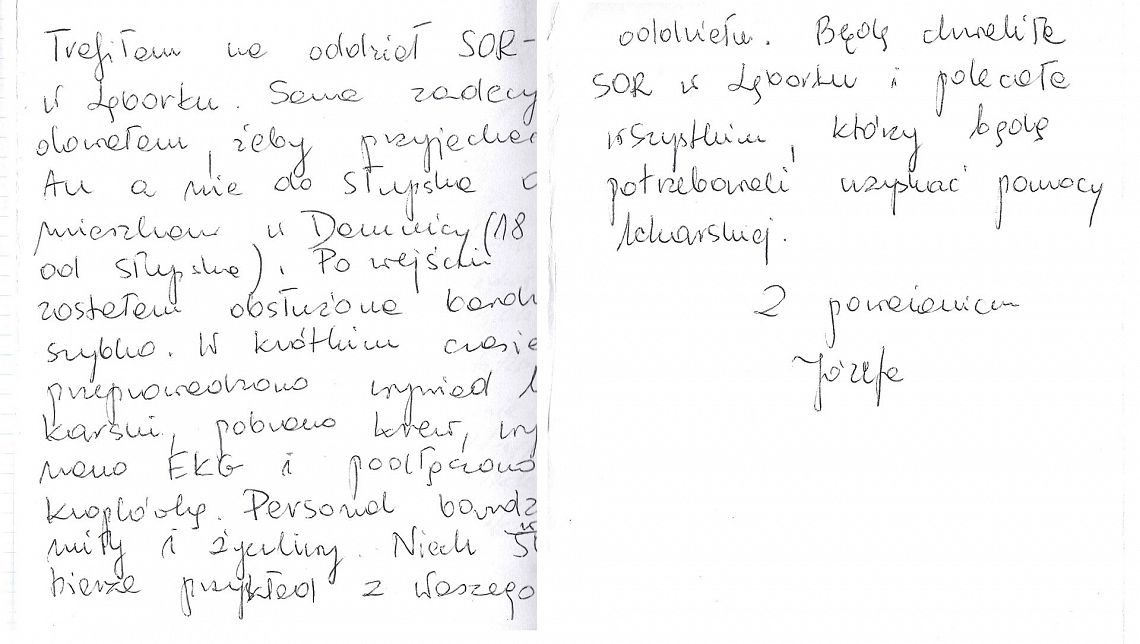 Trafiłam na oddział SOR-
w Lęborku. Sama zadecy
dowałam, żeby przyjechać
tu a nie do Słupska
mieszkam w Damnicy (18
od Słupska). Po wejściu
zostałam obsłużona bardz
szybko. W krótkim czasie
przeprowadzono wywiad l
karski, pobrano krew, wy
nano EKG i podłączono
kroplówkę. Personel bardz
miły i życzliwy. Niech
bierze przykład z Waszego
oddziału. Będę chwaliła
SOR w Lęborku i polecała
wszystkim, którzy będą
potrzebowali uzyskać pomocy
lekarskiej.
Z poważaniem
Józefa